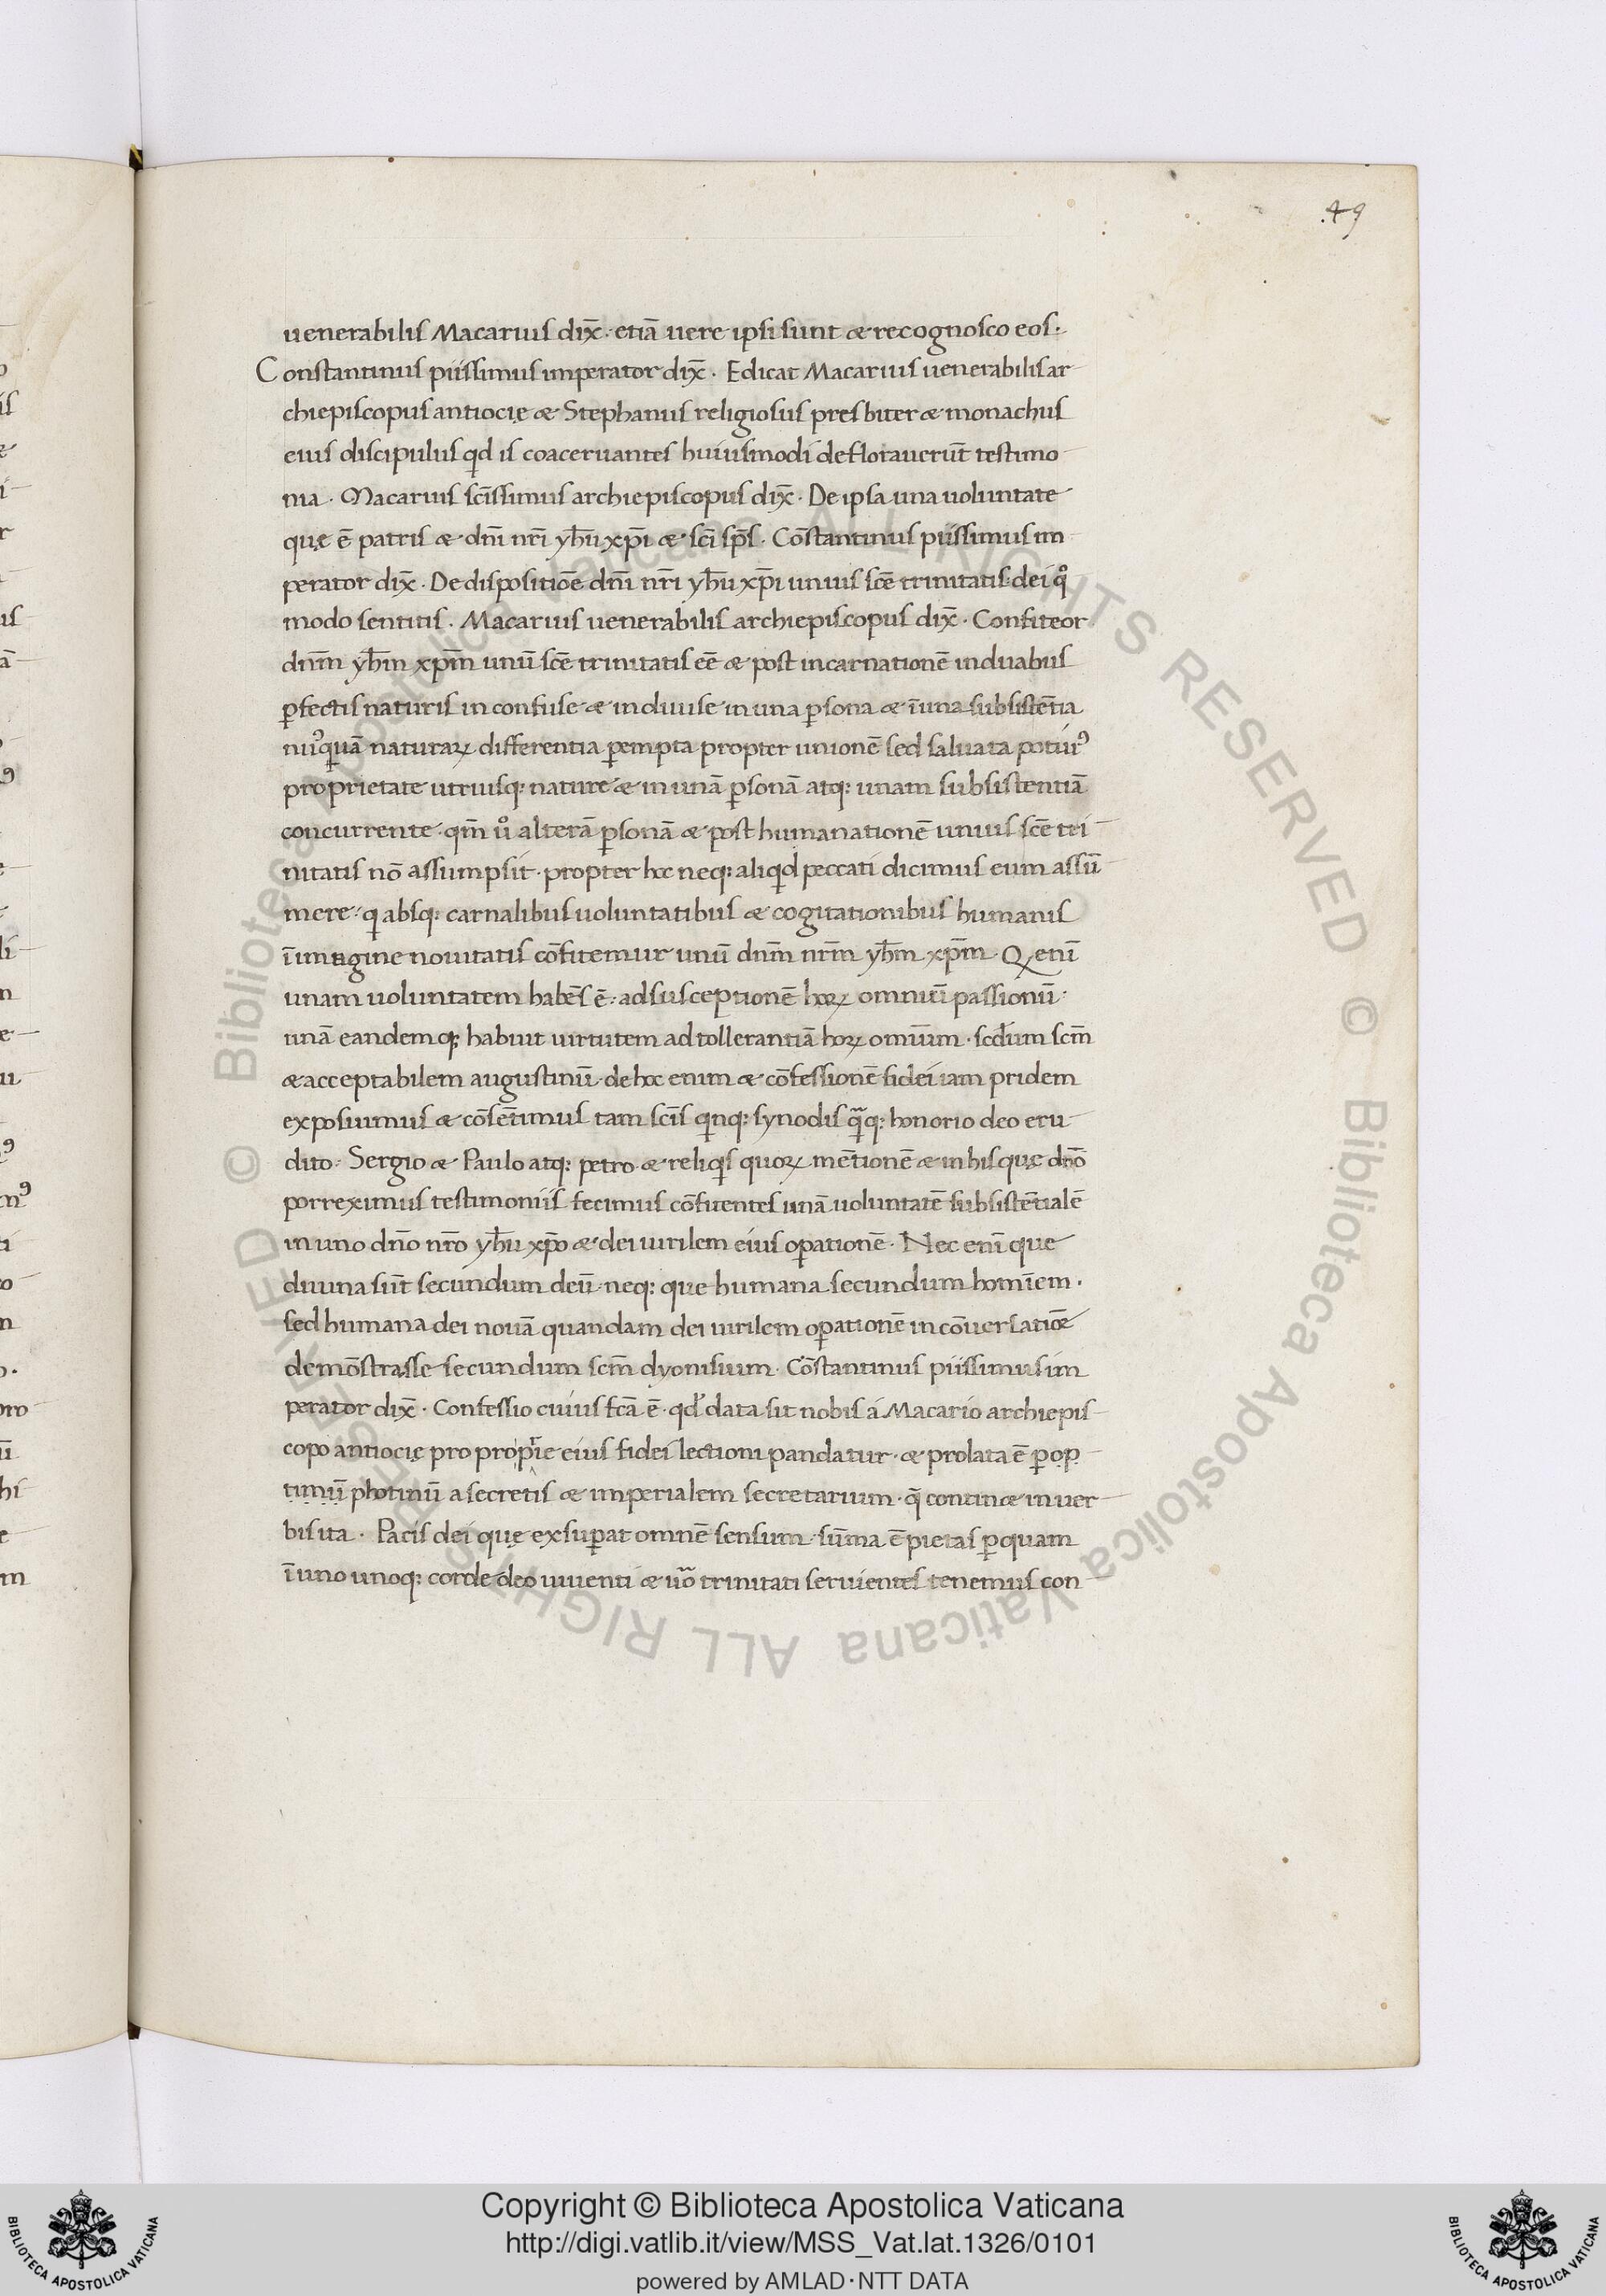 .49
uenerabilis Macarius dix̄. etiā uere ipsi sunt & recognosco eos.
Constantinus piissimus imperator dix̄. Edicat Macarius uenerabilis ar
chiepiscopus antiocię & Stephanus religiosus presbiter & monachus
eius discipulus qd is coaceruantes huiusmodi deflorauerūt testimo
nia. Macarius scīssimus archiepiscopus dix̄. De ipsa una uoluntate
quę ē patris & dn̄i nr̄i yħu xp̄i & sc̄i sp̄s. Cōstantinus piissimus im
perator dix̄. De dispositiōe dn̄i nr̄i yħu xp̄i unius scē trinitatis dei qͦ
modo sentitis. Macarius uenerabilis archiepiscopus dix̄. Confiteor
dnm̄ yħm xpm̄ unū scē trinitatis eē & post incarnationē in duabus
ꝑfectis naturis inconfuse & indiuise in una ꝑsona & ī una subsistētia
nuꝰquā naturaꝝ differentia ꝑempta propter unionē sed saluata potiurꝰ
proprietate utriusq; nature & in unā ꝑsonā atq; unam subsistentiā
concurrente. qm̄ uͦ alterā ꝑsonā & post humanationē unius scē tri
nitatis nō assumpsit. propter hoc neq; aliqd peccati dicimus eum assū
mere. q absq; carnalibus uoluntatibus & cogitationibus humanis
ī imagine nouitatis cōfitemur unū dnm̄ nrm̄ yħm xpm̄. Q enī
unam uoluntatem habēs ē. ad susceptionē hoꝝ omniū passionū.
unā eandemq; habuit uirtutem ad tollerantiā hoꝝ omīum. scđum scm̄
& acceptabilem augustinū. de hoc enim & cōfessionē fidei iam pridem
exposuimus & cōsētimus tam scīs qinq; synodis qꝫq; honorio deo eru
dito. Sergio & Paulo atq; petro & reliqis quoꝝ mētionē & in his quę dn̄o
porreximus testimoniis fecimus cōfitentes unā uoluntatē subsistētialē
in uno dn̄o nr̄o yħu xp̄o & dei uirilem eius oꝑationē. Nec enī que
diuina sūt secundum deū. neq; que humana secundum homīem.
sed humana dei nouā quandam dei uirilem oꝑationē in cōuersatiōe
demōstrasse secundum scm̄ dyonisium. Cōstantinus piissimus im
perator dix̄. Confessio cuius fcā ē. qđ data sit nobis á Macario archiepis
copo antiocię pro proprie eius fidei lectioni pandatur. & prolata ē ꝑ op
timū photinū a secretis & imperialem secretarium. q̄ contin& in uer
bis ita. Pacis dei quę exsuꝑat omnē sensum. sūma ē pietas ꝑ quam
ī uno unoq; corde deo uiuenti & uͦ trinitati seruientes tenemus con
Copyright © Biblioteca Apostolica Vaticana
http://digi.vatlib.it/view/MSS_Vat.lat.1326/0101
powered by AMLAD·NTT DATA
BIBLIOTECA APOSTOLICA VATICANA
BIBLIOTECA APOSTOLICA VATICANA
© Biblioteca Apostolica Vaticana ALL RIGHTS RESERVED © Biblioteca Apostolica Vaticana ALL RIGHTS RESERVED